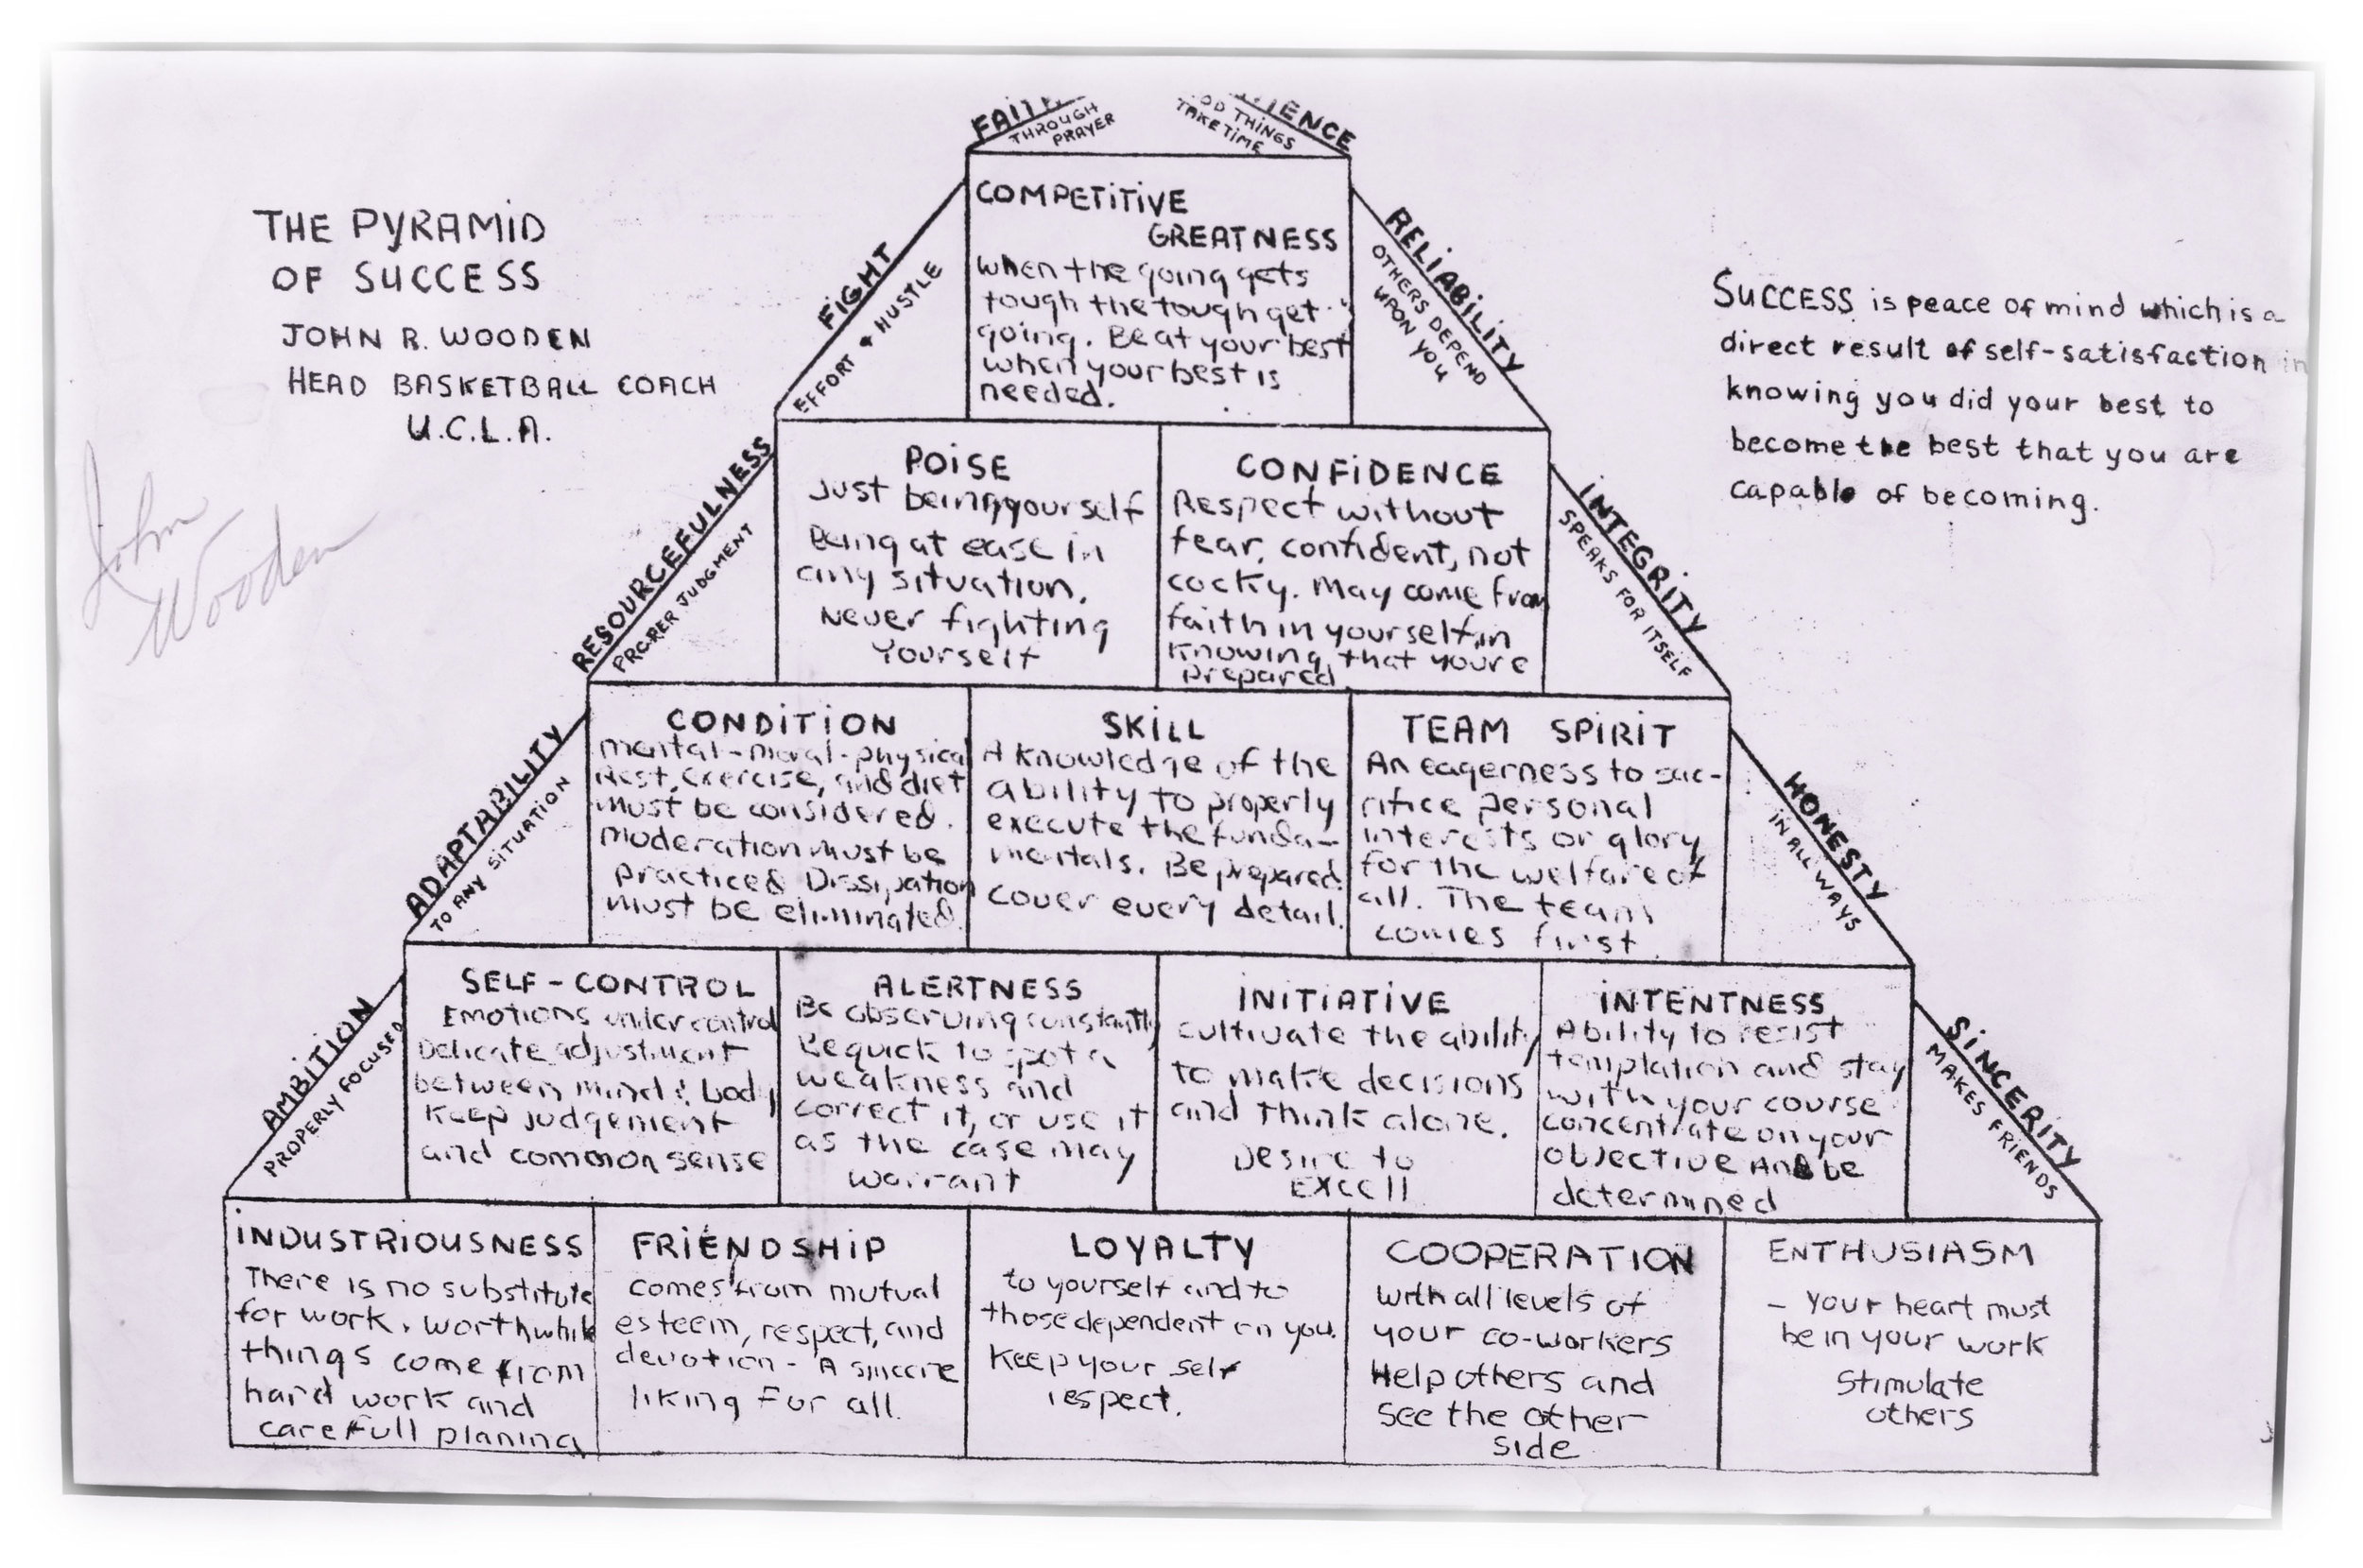 FAITH
THROUGH
PRAYER
PATIENCE
GOOD THINGS
TAKE TIME
THE PYRAMID
OF SUCCESS
JOHN R. WOODEN
HEAD BASKETBALL COACH
U.C.L.A.
John
Wooden
SUCCESS is peace of mind which is a
direct result of self-satisfaction in
knowing you did your best to
become the best that you are
capable of becoming.
FIGHT
EFFORT & HUSTLE
COMPETITIVE
GREATNESS
when the going gets
tough the tough get
going. Be at your best
when your best is
needed.
RELIABILITY
OTHERS DEPEND
UPON YOU
RESOURCEFULNESS
PROPER JUDGMENT
POISE
Just being yourself
Being at ease in
any situation.
Never fighting
Yourself
CONFIDENCE
Respect without
fear, confident, not
cocky. May come from
faith in yourself in
knowing that youre
prepared
INTEGRITY
SPEAKS FOR ITSELF
ADAPTABILITY
TO ANY SITUATION
CONDITION
mental-moral-physical
Rest, exercise, and diet
must be considered.
moderation must be
practiced Dissipation
must be eliminated.
SKILL
A knowledge of the
ability to properly
execute the funda-
mentals. Be prepared
cover every detail.
TEAM SPIRIT
An eagerness to sac-
rifice personal
interests or glory
for the welfare of
all. The team
comes first
HONESTY
IN ALL WAYS
AMBITION
PROPERLY FOCUSED
SELF-CONTROL
Emotions under control
Delicate adjustment
between mind & body
Keep judgement
and common sense
ALERTNESS
Be observing constantly
Be quick to spot a
weakness and
correct it, or use it
as the case may
warrant
INITIATIVE
cultivate the ability
to make decisions
and think alone.
Desire to
EXCELL
INTENTNESS
Ability to resist
temptation and stay
with your course
concentrate on your
objective And be
determined
SINCERITY
MAKES FRIENDS
INDUSTRIOUSNESS
There is no substitute
for work. Worthwhile
things come from
hard work and
carefull planing
FRIENDSHIP
comes from mutual
esteem, respect, and
devotion - A sincere
liking For all.
LOYALTY
to yourself and to
those dependent on you.
Keep your self
respect.
COOPERATION
with all levels of
your co-workers
Help others and
see the other
side
ENTHUSIASM
- Your heart must
be in your work
Stimulate
others